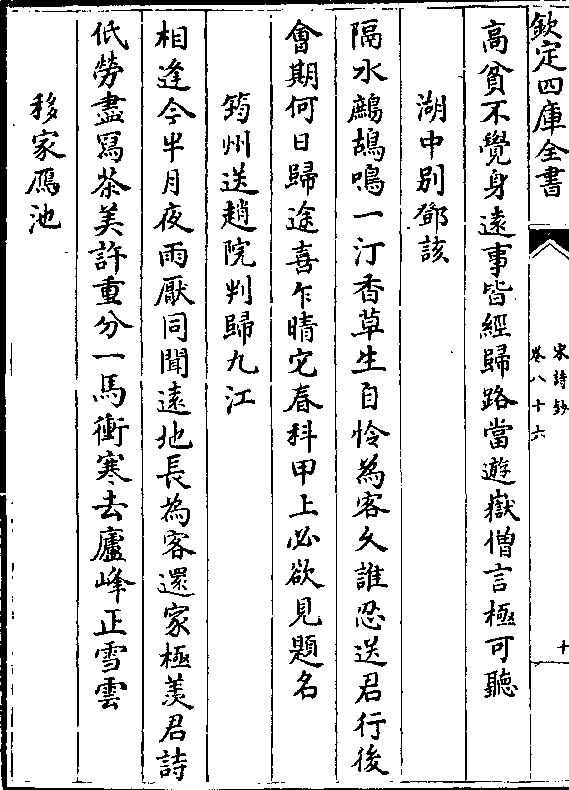 欽定四庫全書
宋詩鈔
卷八十六
十
高貧不覺身遠事皆經歸路當遊嶽僧言極可聽
湖中別鄧該
隔水鷓鴣鳴一汀香草生自憐為客久誰忍送君行後
會期何日歸途喜乍晴它春科甲上必欲見題名
筠州送趙院判歸九江
相逢今半月夜雨厭同聞遠地長為客還家極羡君詩
低勞盡寫茶美許重分一馬衝寒去廬峰正雪雲
移家鴈池